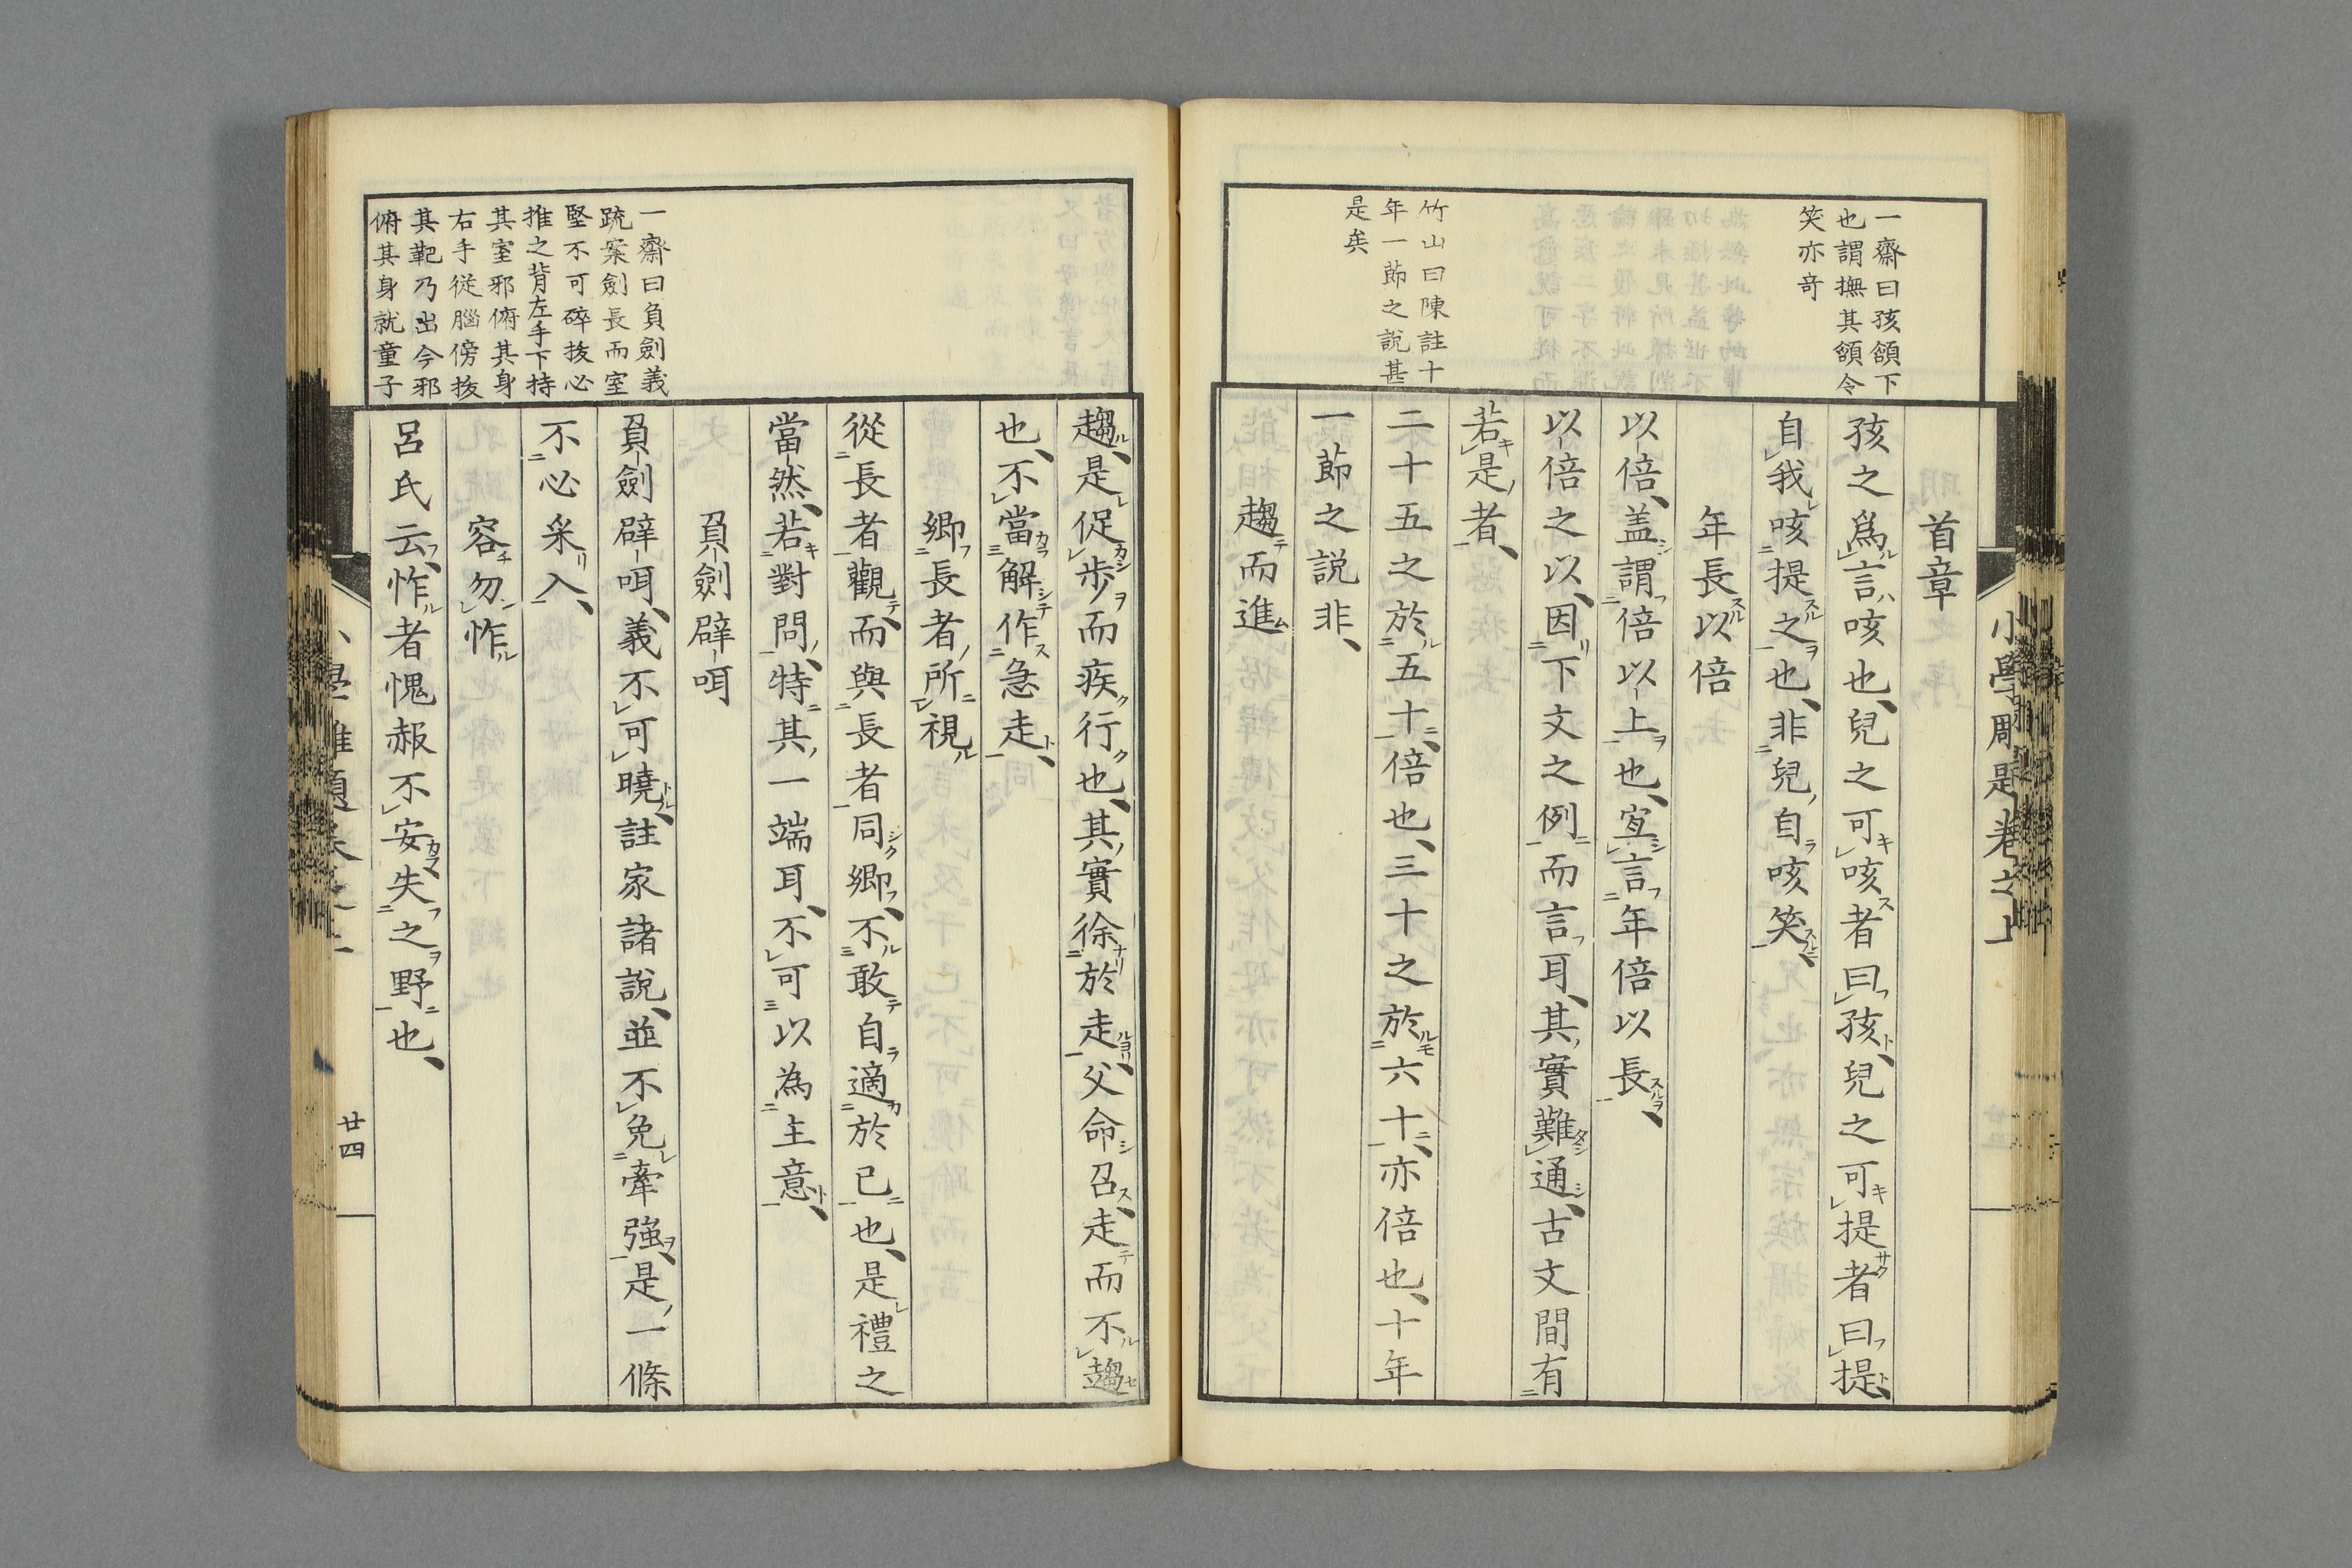 一齋曰孩頷下
也謂撫其頷令
笑亦竒
竹山曰陳註十
年一莭之説甚
是矣
首章
孩之爲言咳也兒之可咳者曰孩兒之可提者曰提
自我咳提之也非兒自咳笑
年長以倍
以倍盖謂倍以上也宜言年倍以長
以倍之以因下文之例而言耳其實難通古文間有
若是者
二十五之於五十倍也三十之於六十亦倍也十年
一莭之説非
趨而進
一齋曰負劍義
䟽案劍長而室
堅不可碎拔必
推之背左手下持
其室邪俯其身
右手従腦傍拔
其靶乃出今邪
俯其身就童子
趨是促歩而疾行也其實徐於走父命召走而不趨
也不當解作急走
鄉長者所視
從長者觀而與長者同鄉不敢自適於已也是禮之
當然若對問特其一端耳不可以為主意
負劍辟咡
負劍辟咡義不可曉註家諸説並不免牽強是一條
不必采入
容勿怍
呂氏云怍者愧赧不安失之野也
廿四